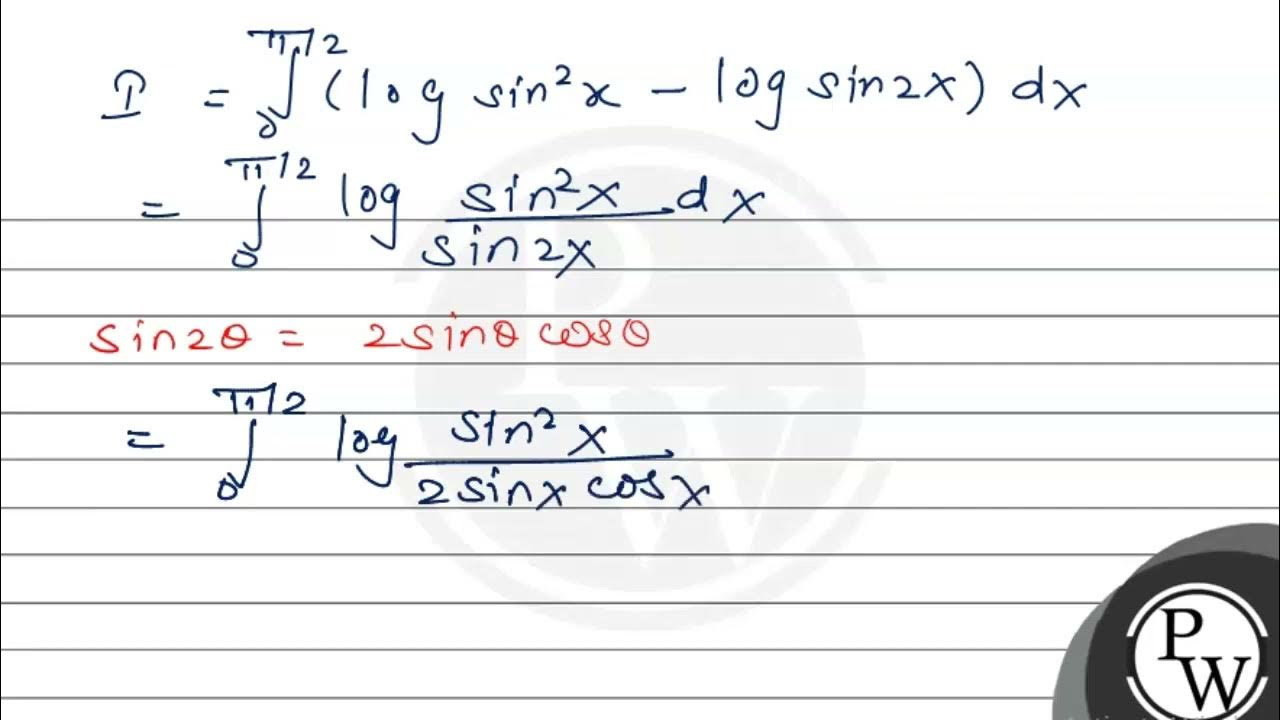 I = ∫₀^π/2 (log sin²x − log sin2x) dx
= ∫₀^π/2 log sin²x/sin2x dx
sin2θ = 2sinθ cosθ
= ∫₀^π/2 log sin²x/2sinx cosx
PW
PW